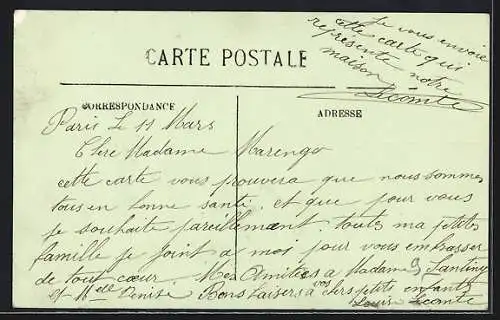 Je vous envoie
cette carte qui
représente notre
maison
Lecomte
CARTE POSTALE
CORRESPONDANCE
ADRESSE
Paris Le 11 Mars
Chere Madame Marengo
cette carte vous prouvera que nous sommes
tous en bonne santé. et que pour vous
je souhaite pareillement. toute ma petite
famille se joint a moi pour vous embrasser
de tout cœur. Mes Amities a Madame Santiny
et Melle Denise Bons baisers a vos petits enfants
Louis Lecomte